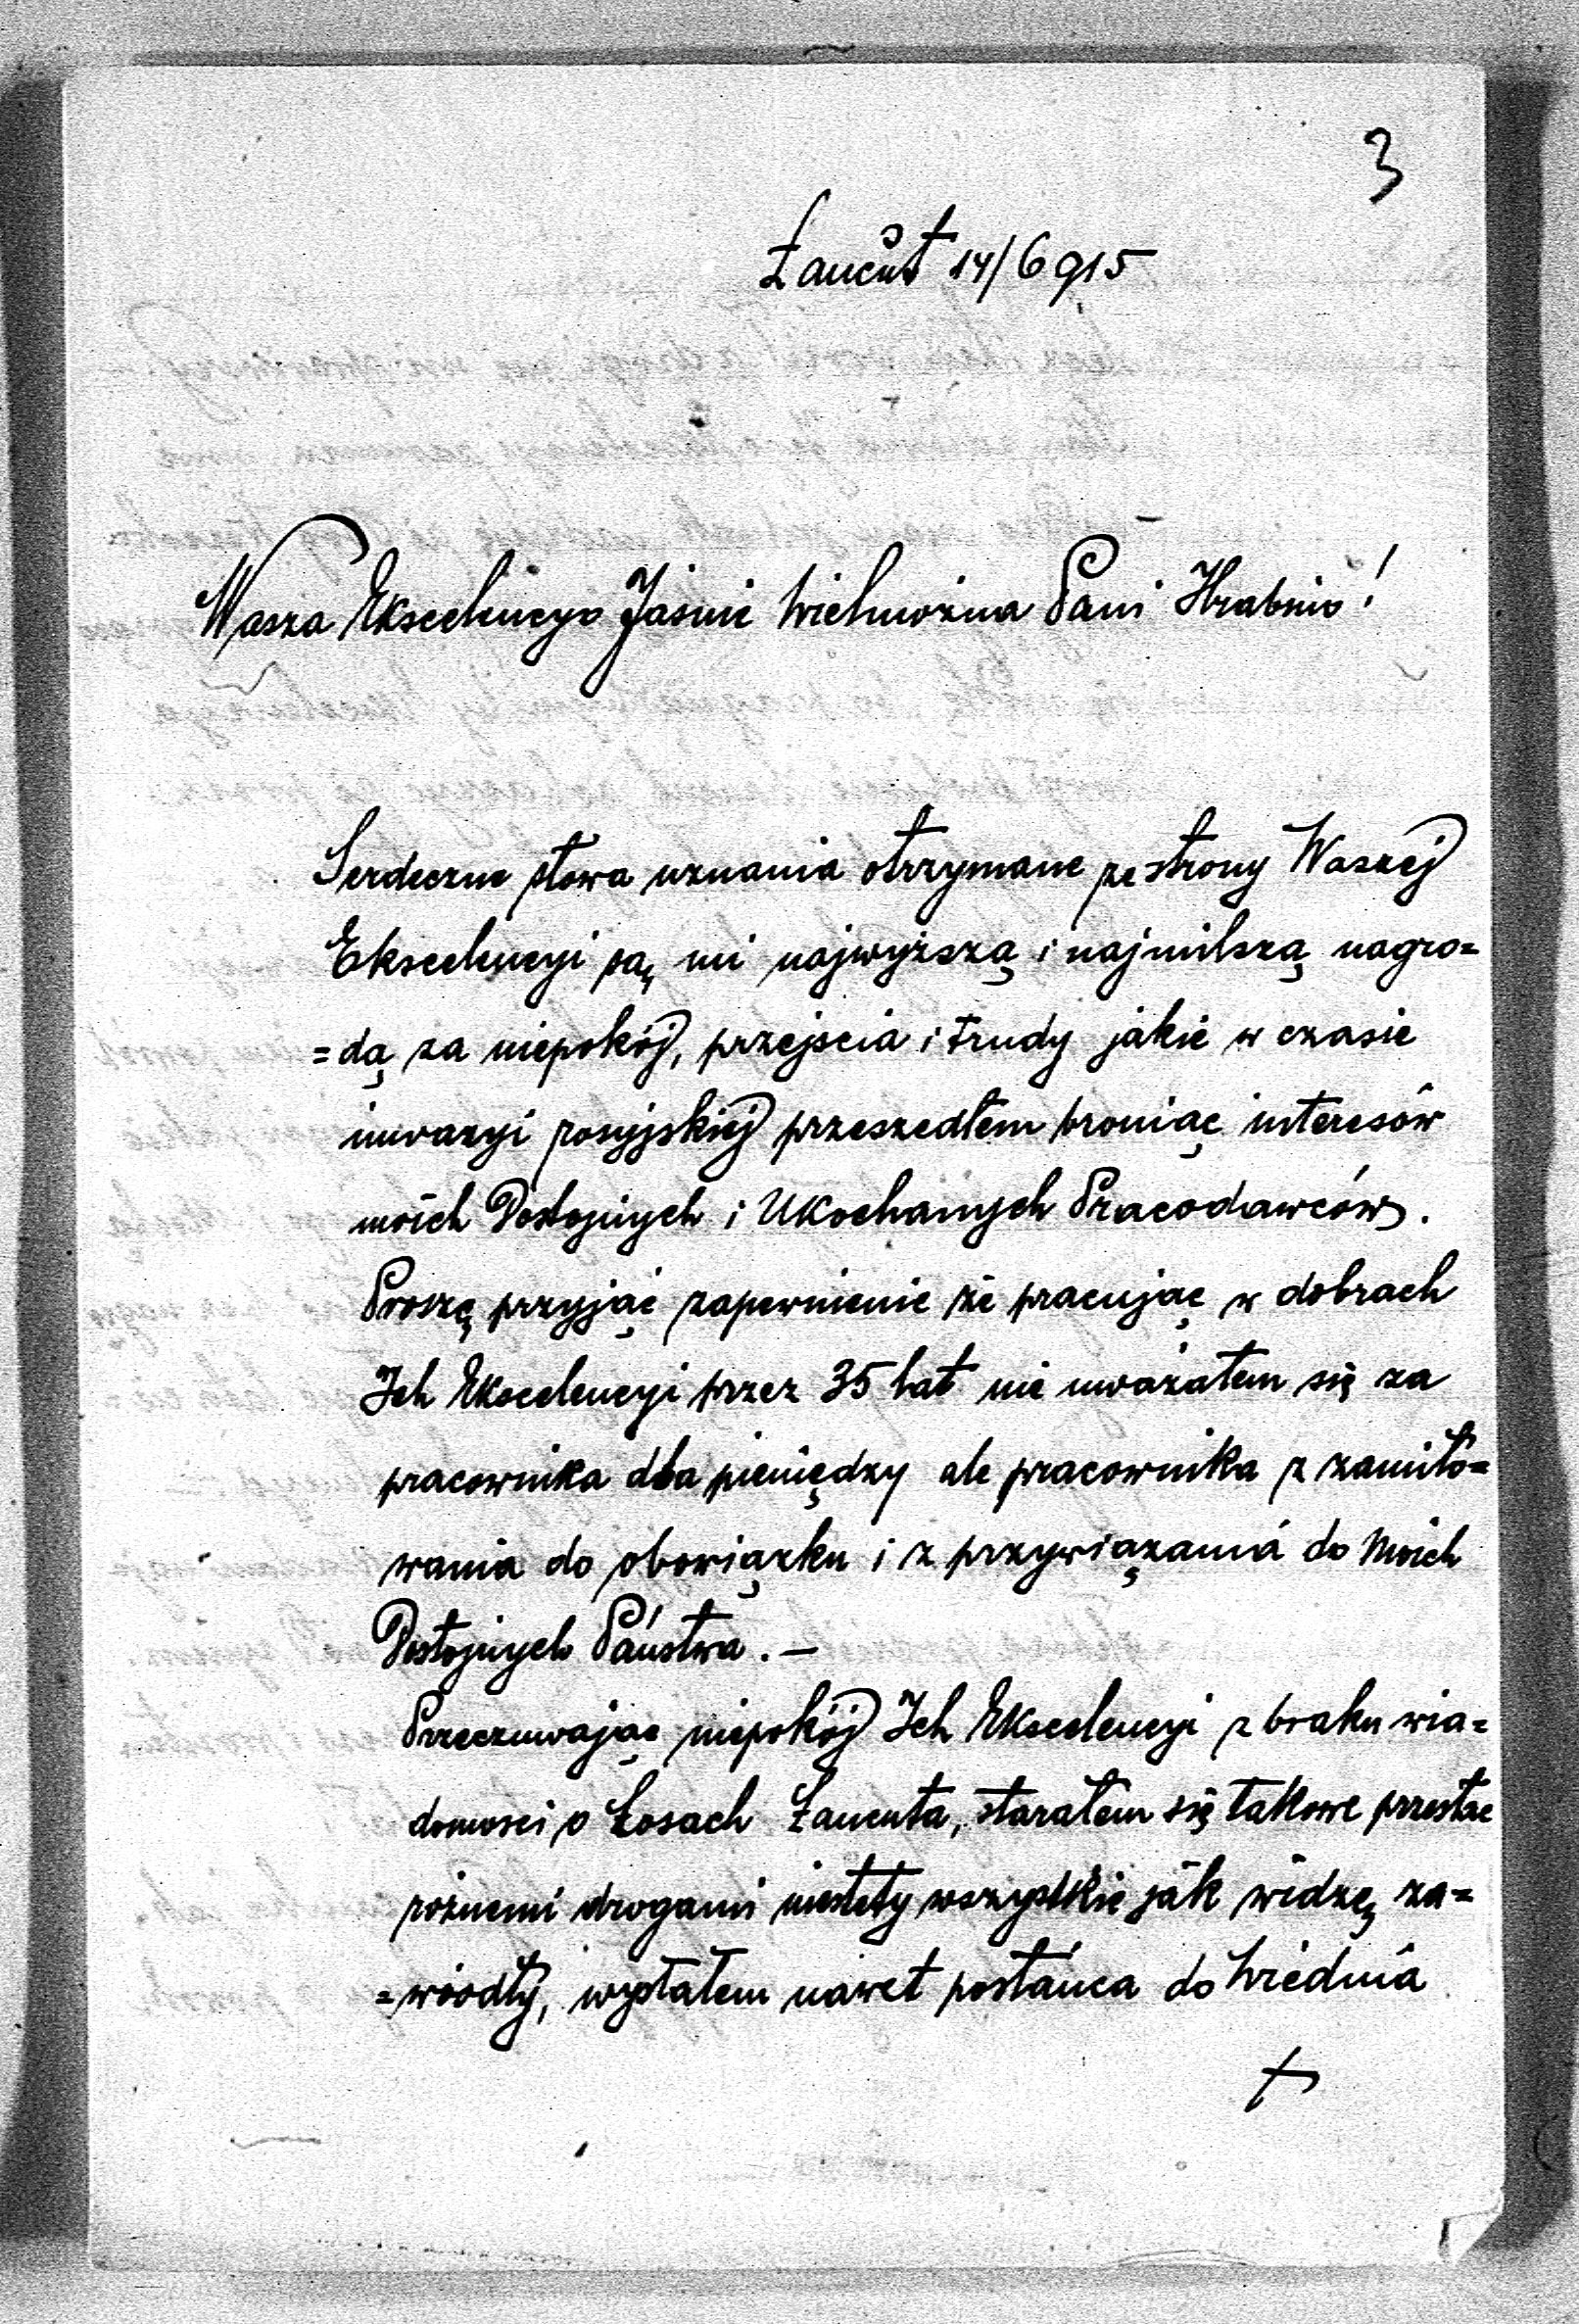 3
Łańcut 14/6 915
Wasza Ekscelencyo Jaśnie Wielmożna Pani Hrabino!
Serdeczne słowa uznania otrzymane ze strony Waszej
Ekscelencyi są mi najwyższą i najmilszą nagro=
=dą za niepokój, przejscia i trudy jakie w czasie
inwazyi rosyjskiej przeszedłem broniąc interesów
moich Dostojnych i Ukochanych Pracodawców.
Proszę przyjąć zapewnienie że pracując w dobrach
Ich Ekscelencyi przez 35 lat nie uważałem się za
pracownika dla pieniędzy ale pracownika z zamiło=
wania do obowiązku i z przywiązania do moich
Dostojnych Państwa. —
Przeczuwając niepokój Ich Ekscelencyi z braku wia=
domosci o Łosach Łancuta, starałem się takowe przesłać
różnemi drogami niestety wszystkie jak widzę za=
=wiodły, wysłałem nawet posłańca do Wiednia